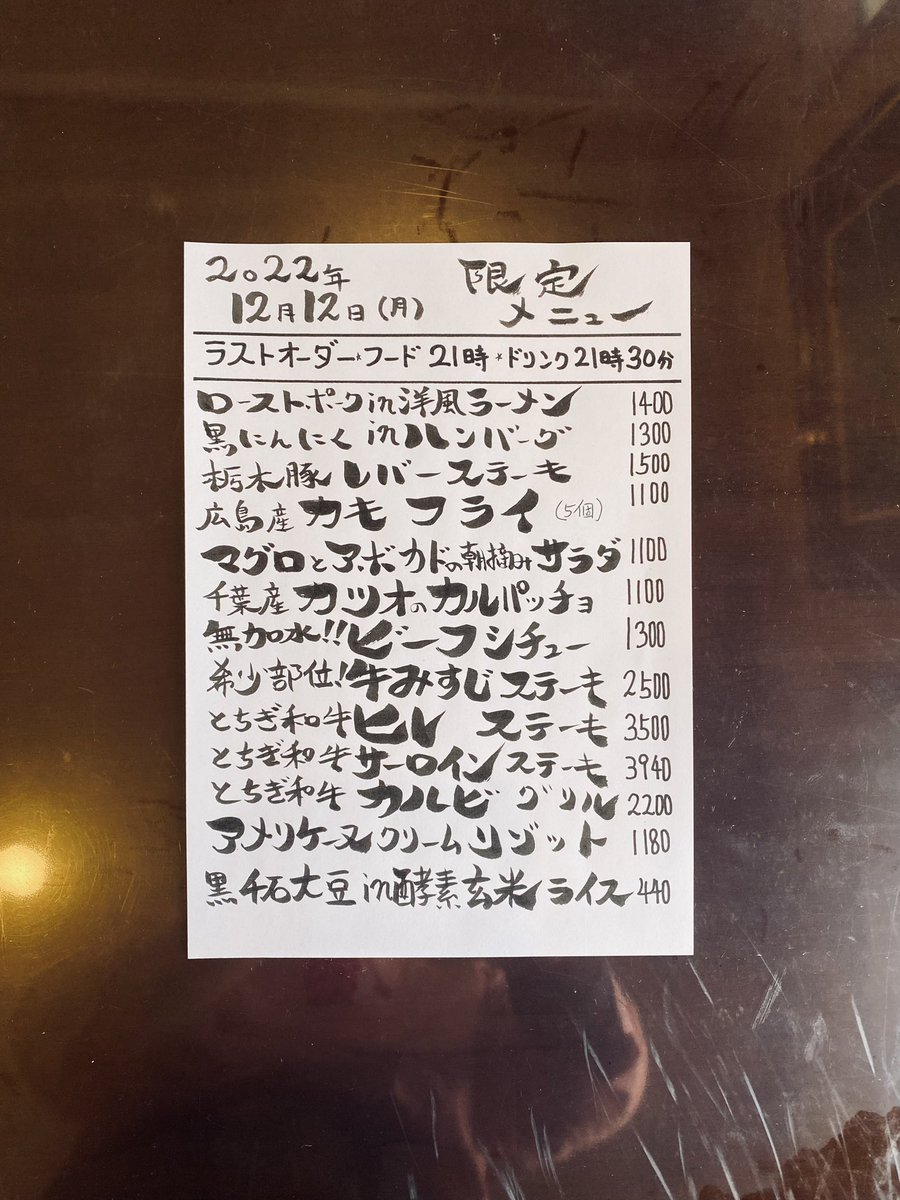 2022年 限定
12月12日(月) メニュー
ラストオーダー*フード 21時*ドリンク21時30分
ローストポークin洋風ラーメン 1400
黒にんにく inハンバーグ 1300
栃木豚 レバーステーキ 1500
広島産 カキ フライ (5個) 1100
マグロとアボカドの朝摘みサラダ 1100
千葉産 カツオのカルパッチョ 1100
無加水!! ビーフシチュー 1300
希少部位! 牛みすじステーキ 2500
とちぎ和牛 ヒレ ステーキ 3500
とちぎ和牛 サーロインステーキ 3940
とちぎ和牛 カルビ グリル 2200
アメリケーヌクリームリゾット 1180
黒千石大豆in酵素玄米ライス 440